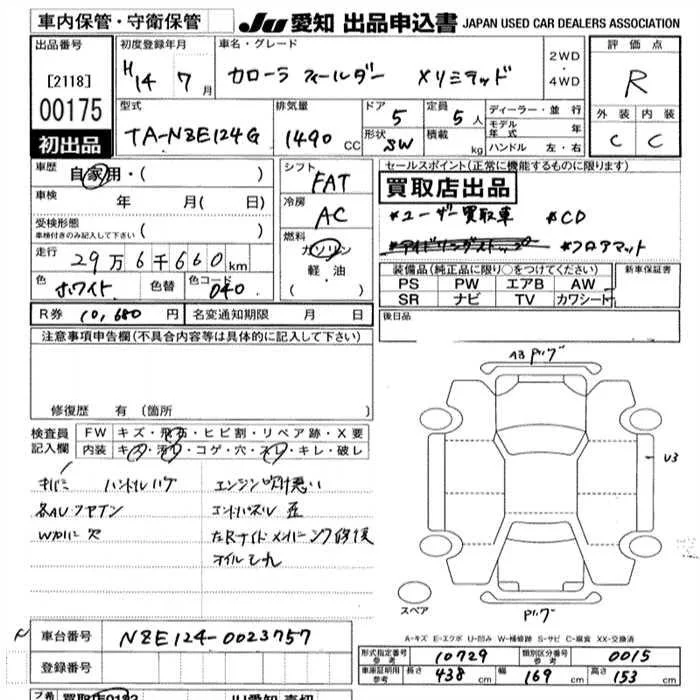 車内保管・守衛保管 JU愛知 出品申込書 JAPAN USED CAR DEALERS ASSOCIATION
出品番号 初度登録年月 車名・グレード 評価点
[2118] H14 7月 カローラ フィールダー Xリミテッド 2WD・4WD R
00175 型式 排気量 ドア 定員 ディーラー・並行 外装 内装
TA-NZE124G 1490 CC 5 5人 モデル年式 年 C C
初出品 形状 SW 積載 kg ハンドル 左・右
車歴 自家用・( ) シフト FAT セールスポイント(正常に機能するものに限ります)
買取店出品
車検 年 月( 日) 冷房 AC *ユーザー買取車 *CD
受検形態 車検付きのみ記入して下さい ( )
燃料 ガソリン 軽・油 ( ) *アイドリングストップ *フロアマット
走行 29万6千660km
色 ホワイト 色替 色コード 040
装備品(純正品に限り○をつけてください) 新車保証書
PS PW エアB AW
SR ナビ TV カワシート
R券 10,680円 名変通知期限 月 日 後日品
注意事項申告欄(不具合内容等は具体的に記入して下さい)
修復歴 有 (箇所 )
A3 Pツグ
検査員記入欄 FW キズ・飛石・ヒビ割・リペア跡・X要
内装 キズ・汚れ・コゲ・穴・スレ・キレ・破レ
U3
ハンドルハゲ エンジン吹け悪い
エンドパネル 歪
オイルもれ
スペア
Pツグ
A-キズ E-エクボ U-凹み W-補修跡 S-サビ C-腐食 XX-交換済
車台番号 NZE124-0023757
登録番号
形式指定番号 参考 10729 類別区分番号 参考 0015
車庫証明用 参考 長さ 438cm 幅 169cm 高さ 153cm